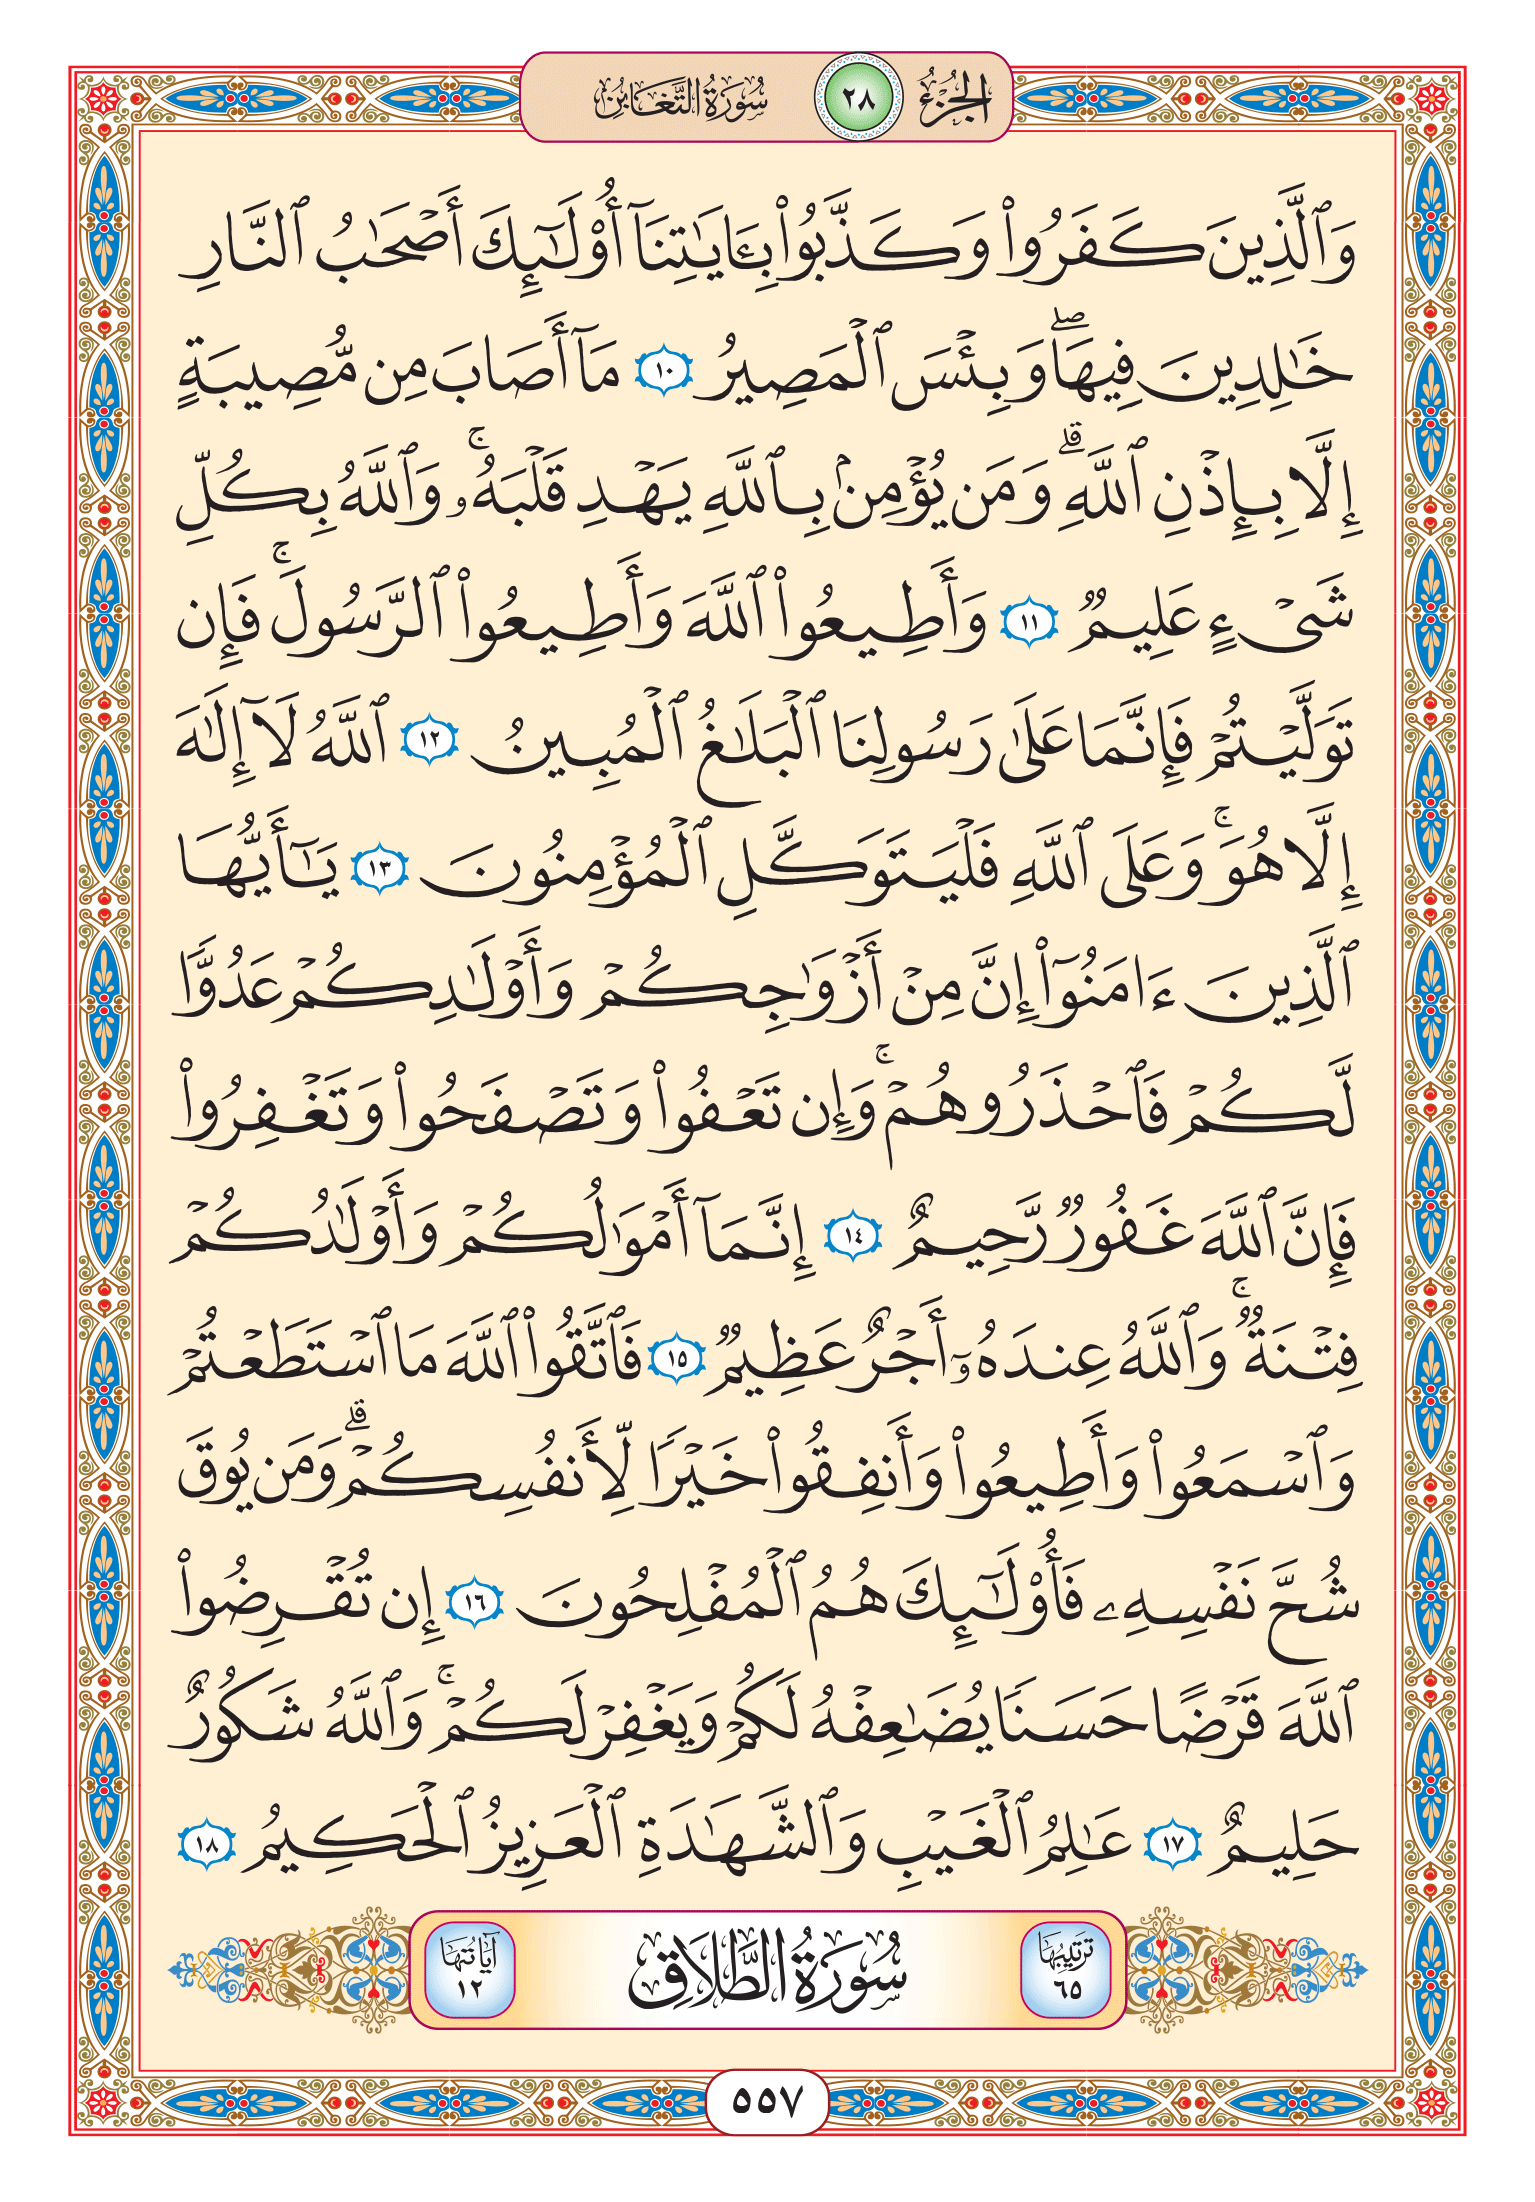 الجزء ٢٨ سورة التغابن
وَٱلَّذِينَ كَفَرُوا۟ وَكَذَّبُوا۟ بِـَٔايَـٰتِنَآ أُو۟لَـٰٓئِكَ أَصْحَـٰبُ ٱلنَّارِ
خَـٰلِدِينَ فِيهَا ۖ وَبِئْسَ ٱلْمَصِيرُ ١٠ مَآ أَصَابَ مِن مُّصِيبَةٍ
إِلَّا بِإِذْنِ ٱللَّهِ ۗ وَمَن يُؤْمِنۢ بِٱللَّهِ يَهْدِ قَلْبَهُۥ ۚ وَٱللَّهُ بِكُلِّ
شَىْءٍ عَلِيمٌ ١١ وَأَطِيعُوا۟ ٱللَّهَ وَأَطِيعُوا۟ ٱلرَّسُولَ ۚ فَإِن
تَوَلَّيْتُمْ فَإِنَّمَا عَلَىٰ رَسُولِنَا ٱلْبَلَـٰغُ ٱلْمُبِينُ ١٢ ٱللَّهُ لَآ إِلَـٰهَ
إِلَّا هُوَ ۚ وَعَلَى ٱللَّهِ فَلْيَتَوَكَّلِ ٱلْمُؤْمِنُونَ ١٣ يَـٰٓأَيُّهَا
ٱلَّذِينَ ءَامَنُوٓا۟ إِنَّ مِنْ أَزْوَٰجِكُمْ وَأَوْلَـٰدِكُمْ عَدُوًّا
لَّكُمْ فَٱحْذَرُوهُمْ ۚ وَإِن تَعْفُوا۟ وَتَصْفَحُوا۟ وَتَغْفِرُوا۟
فَإِنَّ ٱللَّهَ غَفُورٌ رَّحِيمٌ ١٤ إِنَّمَآ أَمْوَٰلُكُمْ وَأَوْلَـٰدُكُمْ
فِتْنَةٌ ۚ وَٱللَّهُ عِندَهُۥٓ أَجْرٌ عَظِيمٌ ١٥ فَٱتَّقُوا۟ ٱللَّهَ مَا ٱسْتَطَعْتُمْ
وَٱسْمَعُوا۟ وَأَطِيعُوا۟ وَأَنفِقُوا۟ خَيْرًا لِّأَنفُسِكُمْ ۗ وَمَن يُوقَ
شُحَّ نَفْسِهِۦ فَأُو۟لَـٰٓئِكَ هُمُ ٱلْمُفْلِحُونَ ١٦ إِن تُقْرِضُوا۟
ٱللَّهَ قَرْضًا حَسَنًا يُضَـٰعِفْهُ لَكُمْ وَيَغْفِرْ لَكُمْ ۚ وَٱللَّهُ شَكُورٌ
حَلِيمٌ ١٧ عَـٰلِمُ ٱلْغَيْبِ وَٱلشَّهَـٰدَةِ ٱلْعَزِيزُ ٱلْحَكِيمُ ١٨
ترتيبها ٦٥ سُورَةُ الطَّلَاقِ آياتها ١٢
٥٥٧